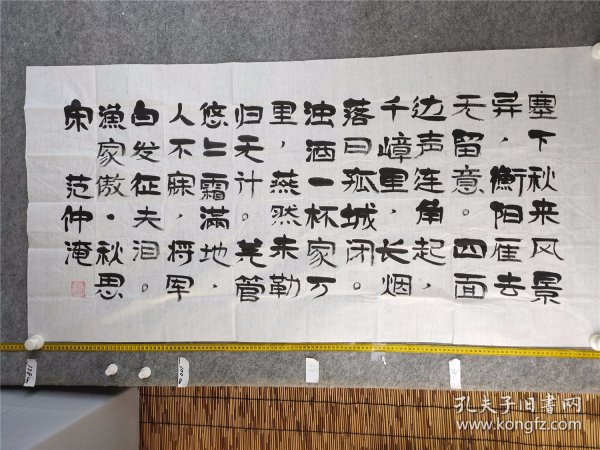 塞下秋来风景
异，衡阳雁去
无留意。四面
边声连角起，
千嶂里，长烟
落日孤城闭。
浊酒一杯家万
里，燕然未勒
归无计。羌管
悠〻霜滿地，
人不寐，将军
白发征夫泪。
漁家傲·秋思
宋 范仲淹
孔夫子旧书网
www.kongfz.com